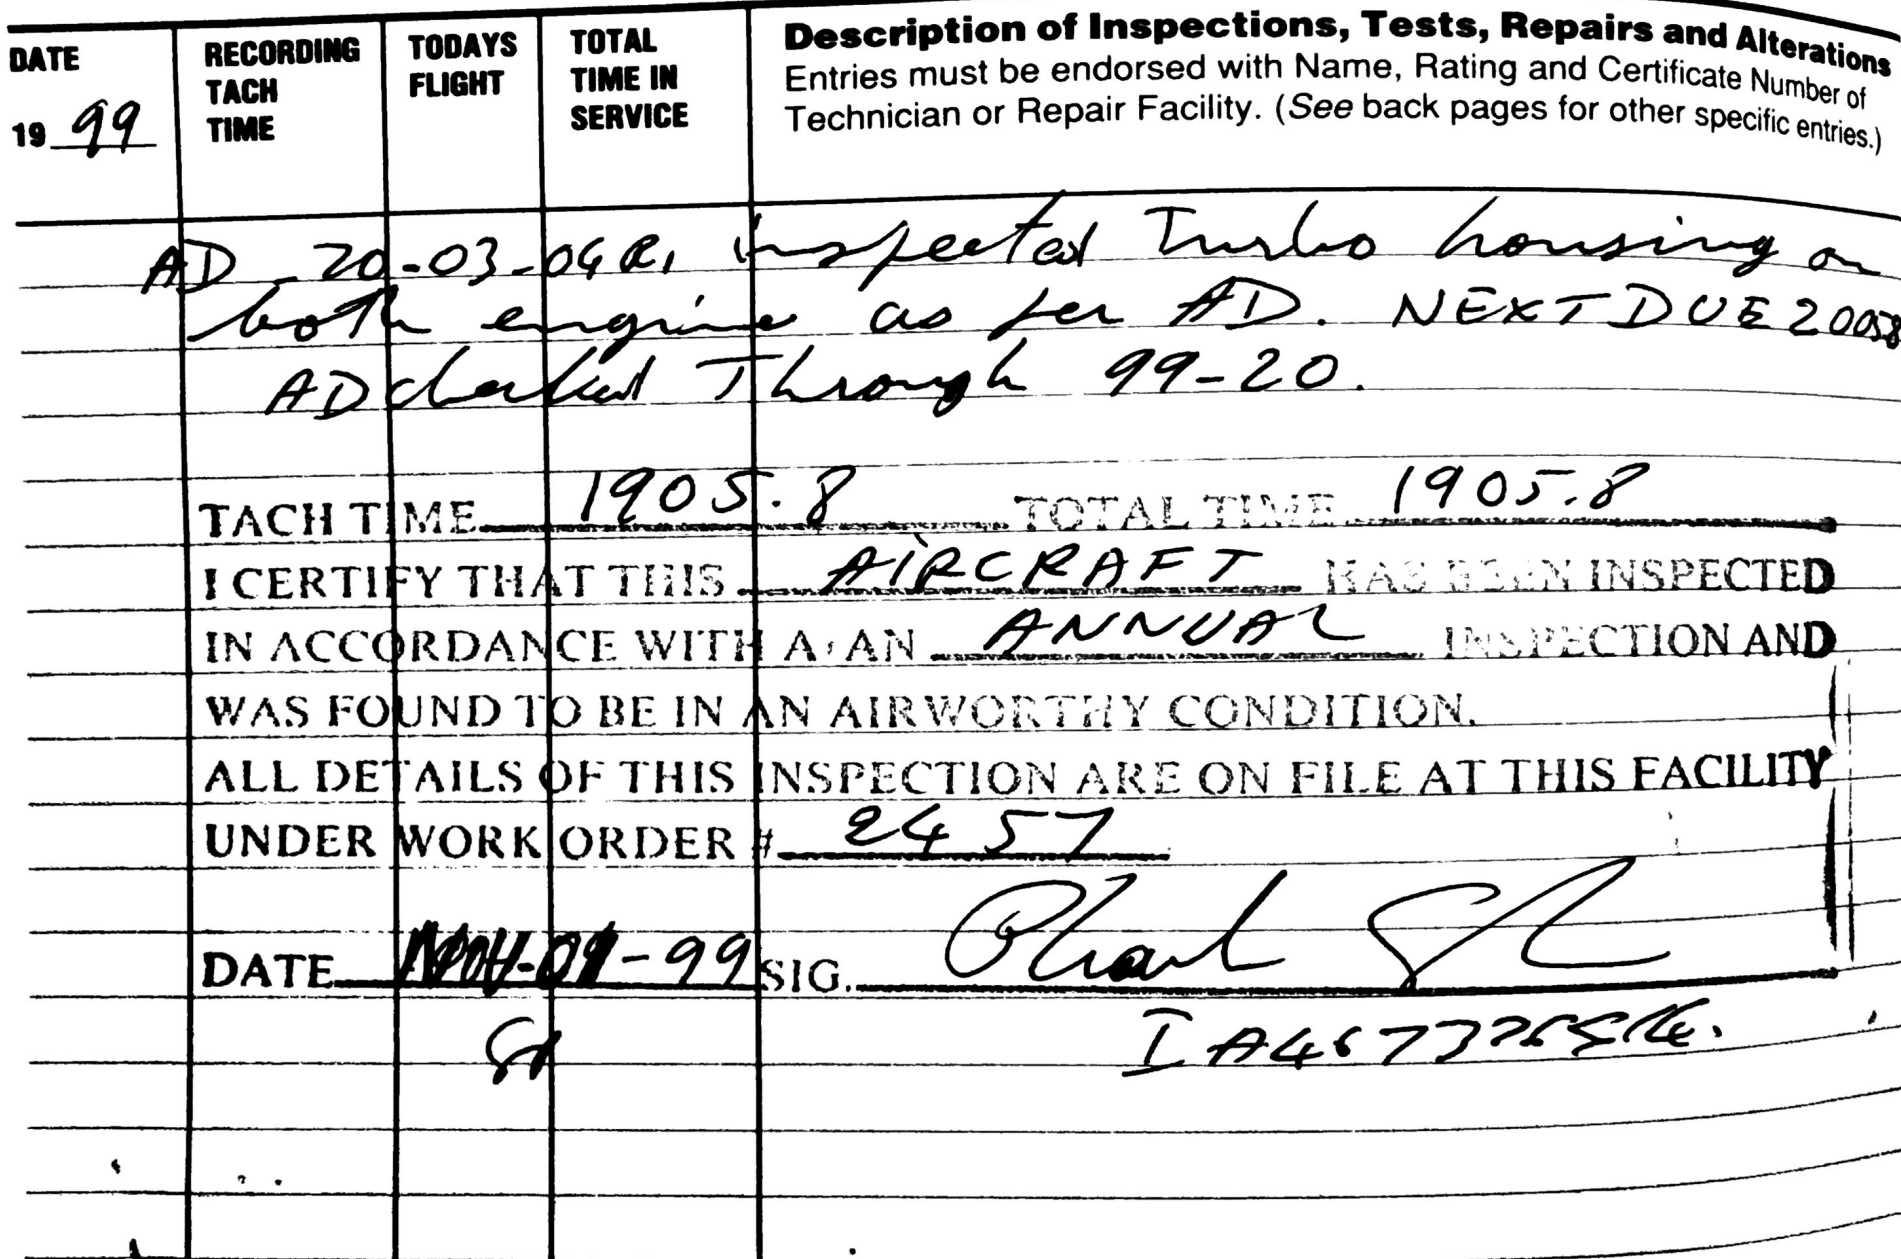 DATE
19 99
RECORDING
TACH
TIME
TODAYS
FLIGHT
TOTAL
TIME IN
SERVICE
Description of Inspections, Tests, Repairs and Alterations
Entries must be endorsed with Name, Rating and Certificate Number of
Technician or Repair Facility. (See back pages for other specific entries.)
AD - 20-03-04 R1 inspected Turbo housing on
both engine as per AD. NEXT DUE
AD checked Through 99-20.
TACH TIME 1905.8 TOTAL TIME 1905.8
I CERTIFY THAT THIS AIRCRAFT HAS BEEN INSPECTED
IN ACCORDANCE WITH A/AN ANNUAL INSPECTION AND
WAS FOUND TO BE IN AN AIRWORTHY CONDITION.
ALL DETAILS OF THIS INSPECTION ARE ON FILE AT THIS FACILITY
UNDER WORK ORDER # 2457
DATE -99 SIG.